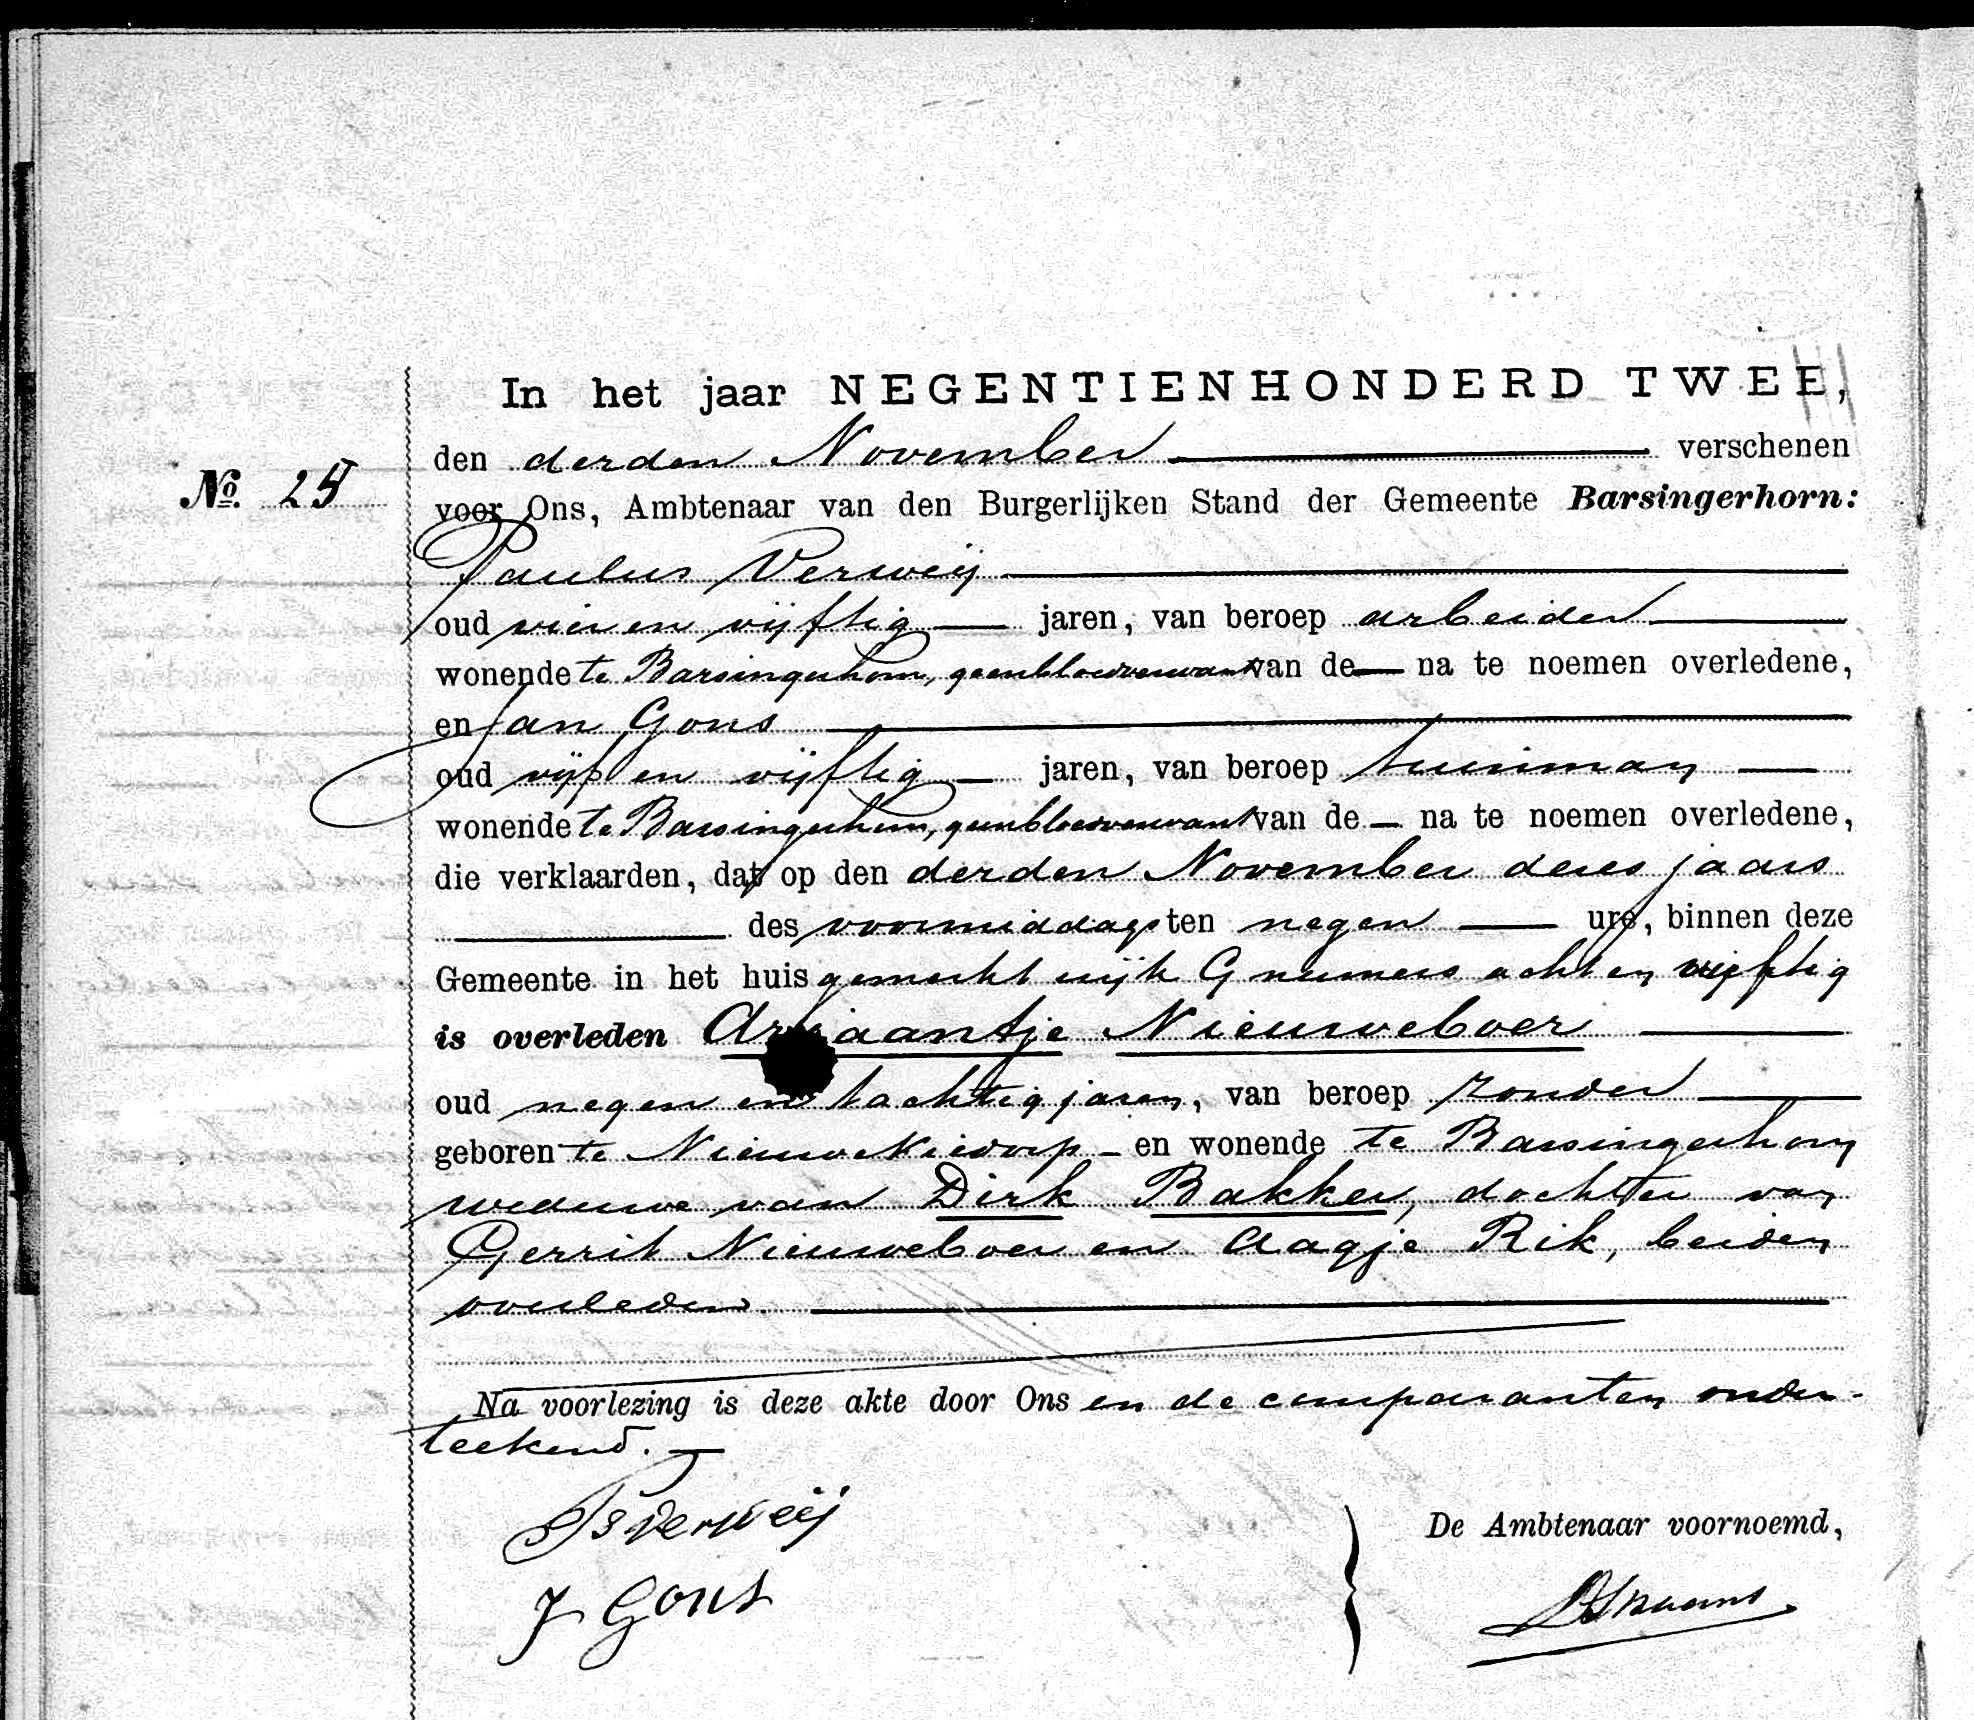 In het jaar NEGENTIENHONDERD TWEE,
den derden November verschenen
No. 25
voor Ons, Ambtenaar van den Burgerlijken Stand der Gemeente Barsingerhorn:
Paulus Verweij
oud vier en vijftig jaren, van beroep arbeider
wonende te Barsingerhorn, geen bloedverwant van de na te noemen overledene,
en Jan Gons
oud vijf en vijftig jaren, van beroep tuinman
wonende te Barsingerhorn, geen bloedverwant van de na te noemen overledene,
die verklaarden, dat op den derden November dezes jaars
des voormiddags ten negen ure, binnen deze
Gemeente in het huis gemerkt wijk G numero acht en vijftig
is overleden Ariaantje Nieuweboer
oud negen en tachtig jaren, van beroep zonder
geboren te Nieuwe Niedorp en wonende te Barsingerhorn
weduwe van Dirk Bakker, dochter van
Gerrit Nieuweboer en Aagje Rik, beiden
overleden.
Na voorlezing is deze akte door Ons en de comparanten onder-
teekend.
Ps Verweij
De Ambtenaar voornoemd,
J Gons